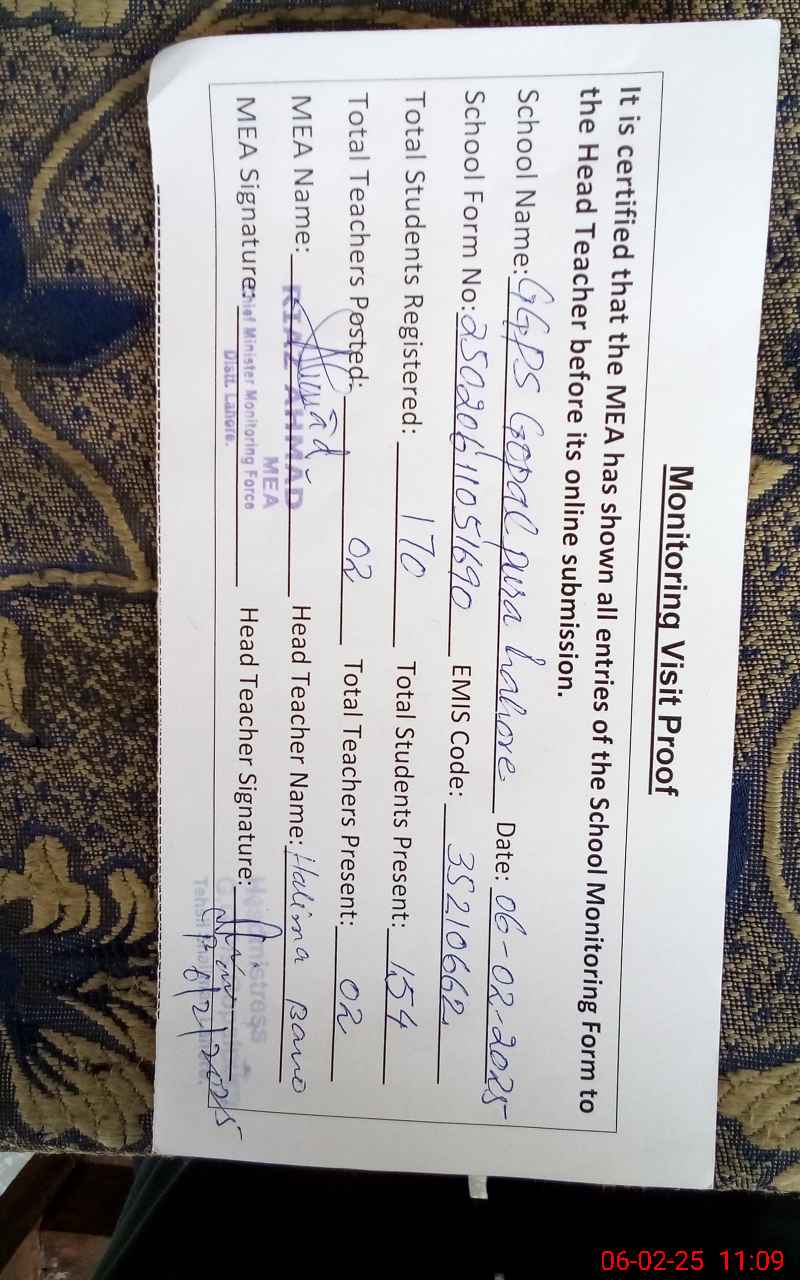 Monitoring Visit Proof
It is certified that the MEA has shown all entries of the School Monitoring Form to
the Head Teacher before its online submission.
School Name: GGPS Gopal pura Lahore Date: 06-02-2025
School Form No: 25020611051690 EMIS Code: 35210662
Total Students Registered: 170 Total Students Present: 154
Total Teachers Posted: 02 Total Teachers Present: 02
MEA Name: RIAZ AHMAD Head Teacher Name: Halima Bano
MEA
MEA Signature: Chief Minister Monitoring Force Head Teacher Signature: Headmistress
Distt. Lahore.
6/2/2025
06-02-25 11:09